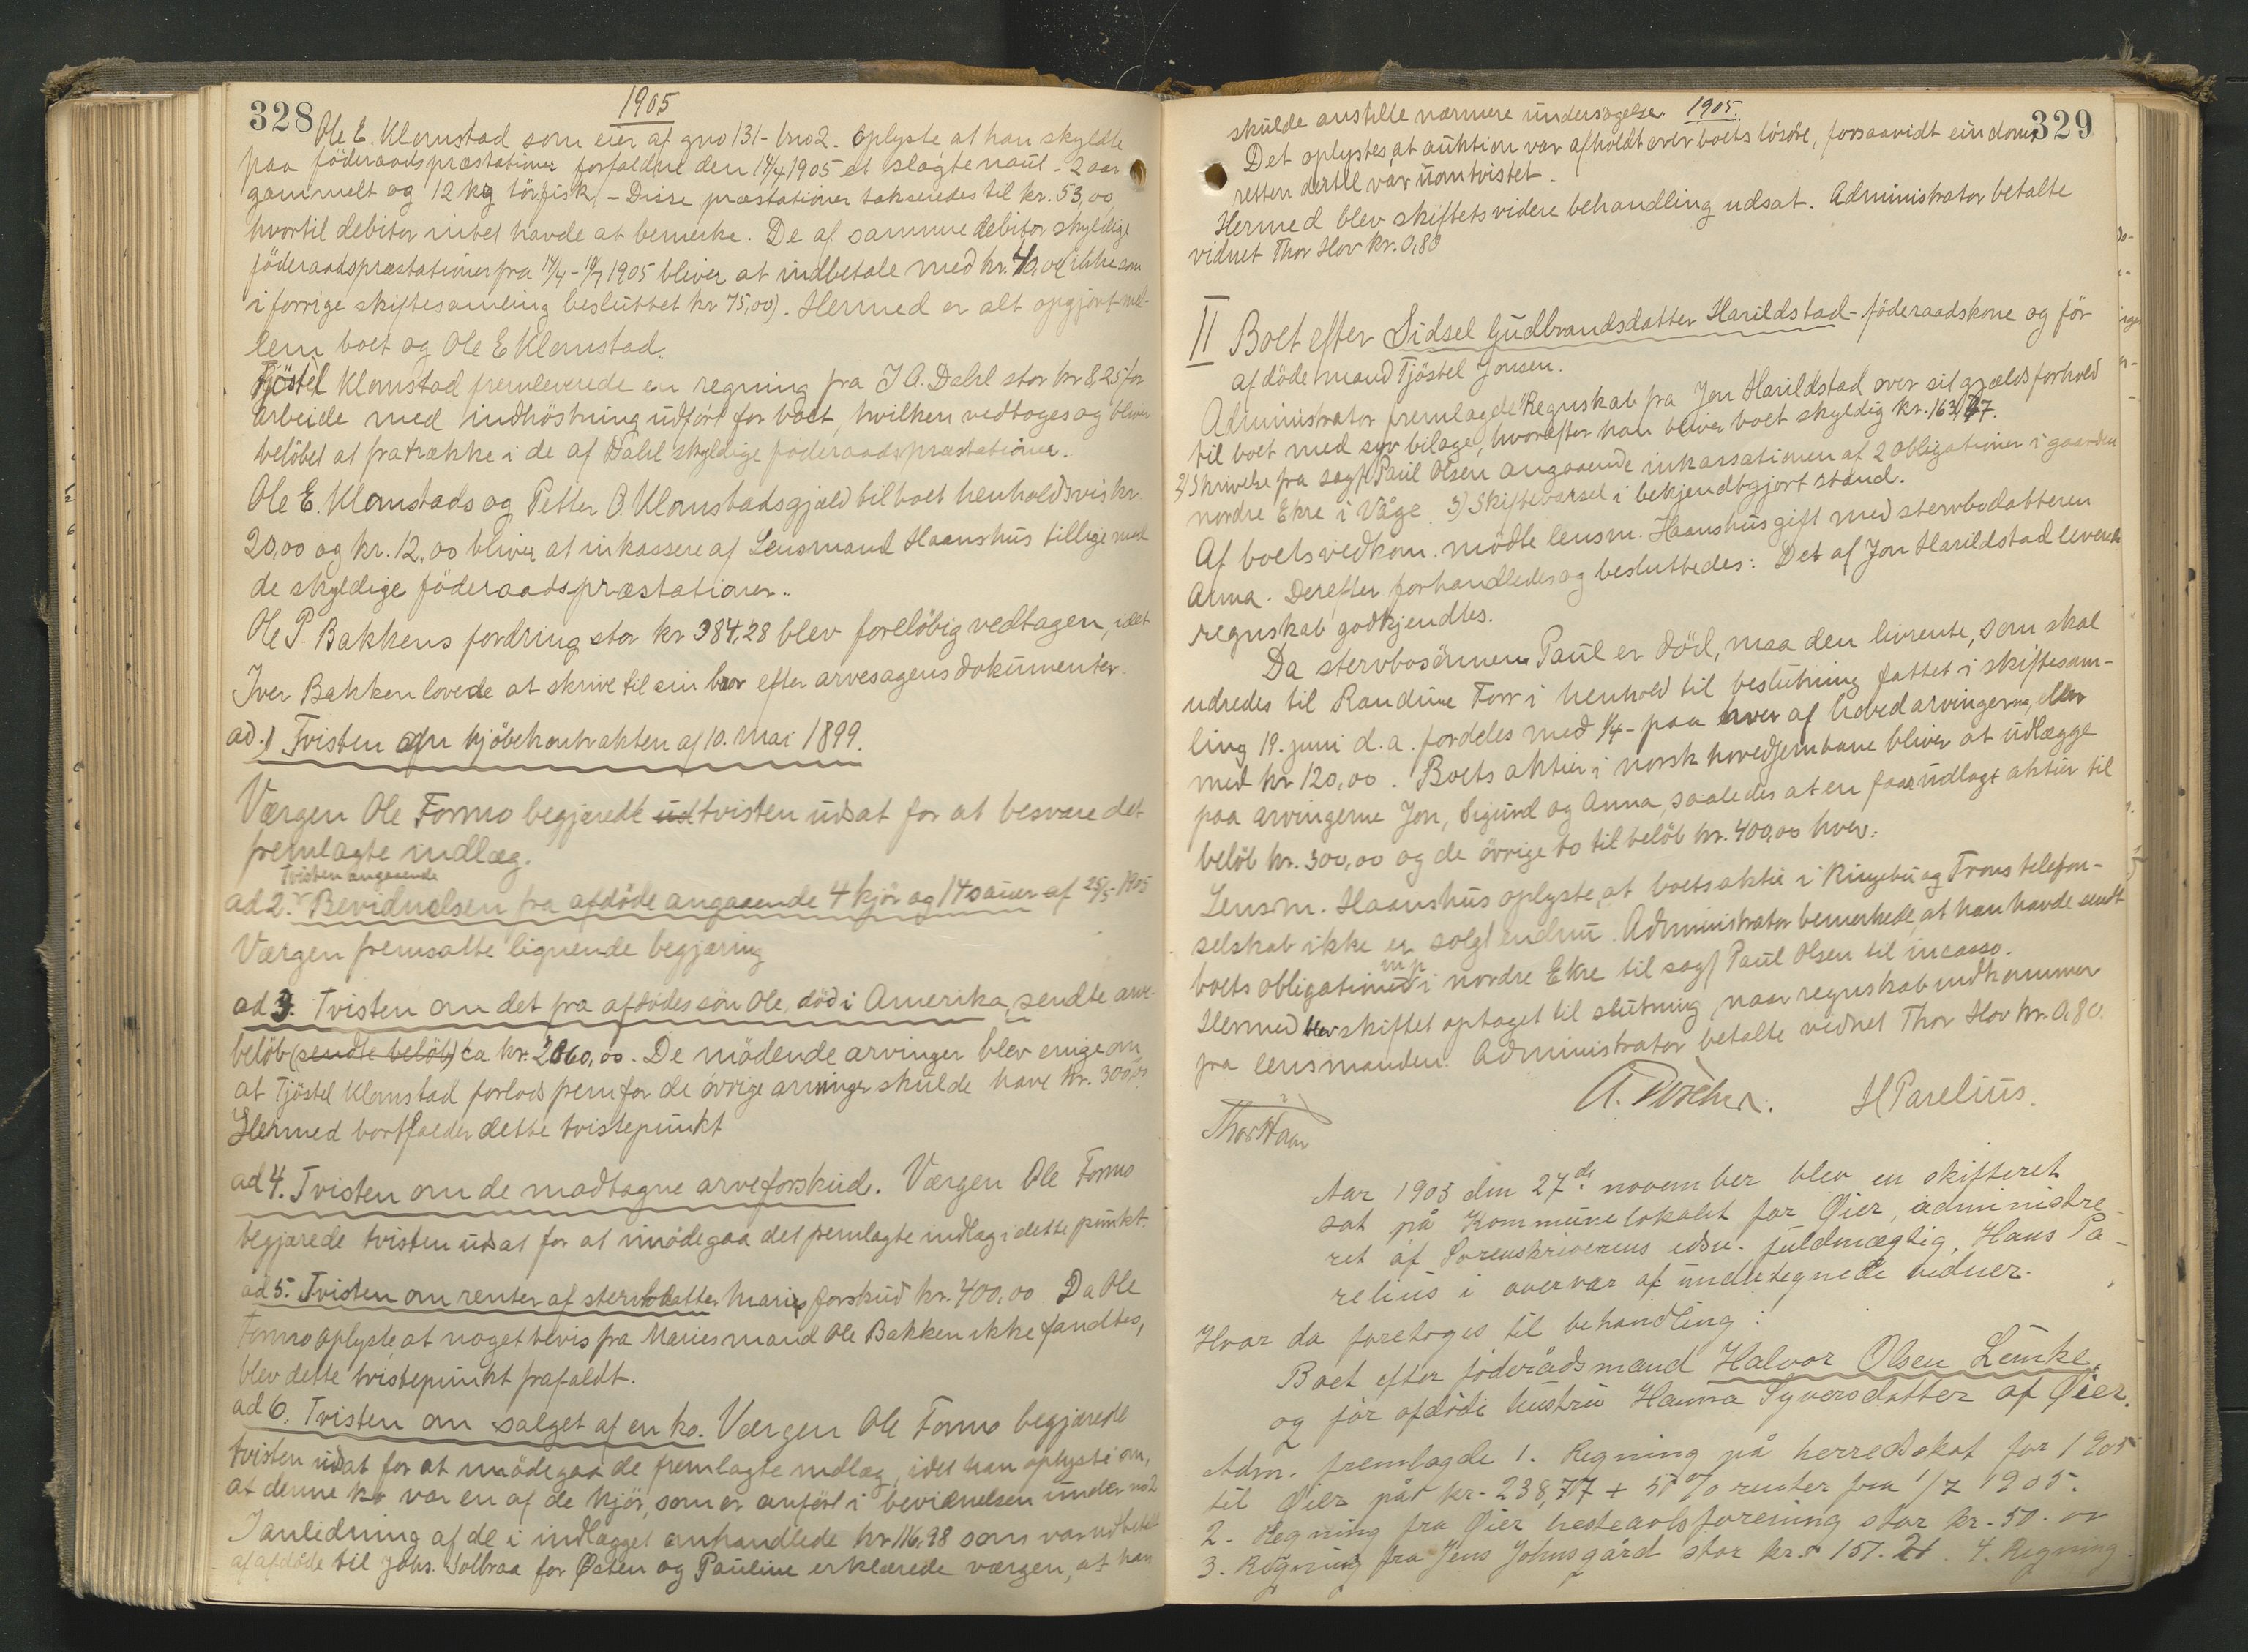 328
1905
Ole E. Klomstad som eier af gno 131 - bno 2. oplyste at han skyldte
paa föderaadspræstationer forfaldne den 14/4 1905 et slagtenaut - 2 aar
gammelt og 12 kg törfisk, - Disse præstationer takseredes til kr. 53,00,
hvortil debitor intet havde at bemerke. De af samme debitor skyldige
föderaadspræstationer fra 14/4 - 19/7 1905 bliver at indbetale med kr. 40,00 (ikke som
i forrige skiftesamling besluttet kr 75,00). Hermed er alt opgjort mel-
lem boet og Ole E Klomstad.
Tjöstel Klomstad fremleverede en regning fra J A. Dahl stor kr 8,25 for
arbeide med indhöstning udfört for boet, hvilken vedtoges og bliver
belöbet at fratrække i de af Dahl skyldige föderaadspræstationer.
Ole E. Klomstads og Petter O. Klomstads gjæld til boet henholdsvis kr.
20,00 og kr. 12,00 bliver at inkassere af Lensmand Haanshus tillige med
de skyldige föderaadspræstationer.
Ole P. Bakkens fordring stor kr 384,28 blev foreløbig vedtagen, idet
Iver Bakken lovede at skrive til sin bror efter arvesagens dokumenter.
ad. 1 Tvisten om kjöbekontrakten af 10. mai 1899.
Værgen Ole Formo begjærede ud tvisten udsat for at besvare det
fremlagte indlæg.
Tvisten angaaende
ad 2. Bevidnelsen fra afdöde angaaende 4 kjör og 14 sauer af 25/5 1905
Værgen fremsatte lignende begjæring
ad 3. Tvisten om det fra afdödes sön Ole, död i Amerika, sendte arve-
belöb (sendte belöb) ca kr. 2060,00. De mödende arvinger blev enige om
at Tjöstel Klomstad forlods fremfor de övrige arvinger skulde have kr. 300,00
Hermed bortfalder dette tvistepunkt
ad 4. Tvisten om de modtagne arveforskud. Værgen Ole Formo
begjærede tvisten udsat for at imödegaa det fremlagte indlæg i dette punkt.
ad 5. Tvisten om renter af stervbodatter Maries forskud kr. 400,00 Da Ole
Formo oplyste at noget bevis fra Maries mand Ole Bakken ikke fandtes,
blev dette tvistepunkt frafaldt.
ad 6. Tvisten om salget af en ko. Værgen Ole Formo begjærede
tvisten udsat for at imödegaa de fremlagte indlæg, idet han oplyste om,
at denne ko var en af de kjör, som er anført i bevidnelsen under no 2
I anledning af de i indlægget omhandlede kr 116,98 som var udbetalt
af afdöde til Johs. Solbraa for Østen og Pauline erklærede værgen, at han
329
1905
skulde anstille nærmere undersögelse.
Det oplystes, at auktion var afholdt over boets lösöre, forsaavidt eindoms
retten dertil var uomtvistet.
Hermed blev skiftets videre behandling udsat. Administrator betalte
vidnet Thor Hov kr. 0,80
II Boet efter Sidsel Gudbrandsdatter Harildstad - föderaadskone og för
afdöde mand Tjöstel Jonsen.
Administrator fremlagde 1) Regnskab fra Jon Harildstad over sit gjældsforhold
til boet med syv bilage, hvorefter han bliver boet skyldig kr. 163,67.
2) Skrivelse fra sagf. Paul Olsen angaaende inkassationen af 2 obligationer i gaarden
nordre Ekre i Våge 3) Skiftevarsel i bekjendtgjort stand.
Af boets vedkom. mödte lensm. Haanshus gift med stervbodatteren
Anna. Derefter forhandledes og besluttedes: Det af Jon Harildstad leverede
regnskab godkjendtes.
Da stervbosönnen Paul er död, maa den livrente, som skal
udredes til Randine Forr i henhold til beslutning fattet i skiftesam-
ling 19. juni d.a. fordeles med 1/4 - paa hver af hovedarvingerne, eller
med kr 120,00. Boets aktier i norsk hovedjernbane bliver at udlægge
paa arvingerne Jon, Sigurd og Anna, saaledes at en faar udlagt aktier til
belöb kr. 300,00 og de övrige to til belöb kr. 400,00 hver.
Lensm. Haanshus oplyste, at boets aktie i Ringebu og Frons telefon-
selskab ikke er solgt endnu. Administrator bemerkede, at han havde sendt
m p
boets obligationer i nordre Ekre til sagf Paul Olsen til incasso.
Hermed blev skiftet optaget til slutning naar regnskab indkommer
fra lensmanden. Administrator betalte vidnet Thor Hov kr. 0,80.
H Parelius.
Thor Haav
Aar 1905 den 27de november blev en skifteret
sat på Kommunelokalet for Øier, administre-
ret af Sorenskriverens edsv. fuldmægtig, Hans Pa-
relius i overvær af undertegnede vidner.
Hvor da foretoges til behandling:
Boet efter föderådsmand Halvor Olsen Lunke,
og för afdöde hustru Hanna Syversdatter af Øier.
Adm. fremlagde 1. Regning på herredsskat for 1905
til Øier på kr. 238,77 + 5% renter fra 1/7 1905.
2. Regning fra Øier hesteavlsforening stor kr. 50.00
3. Regning fra Jens Johnsgård stor kr. 151.21. 4. Regning